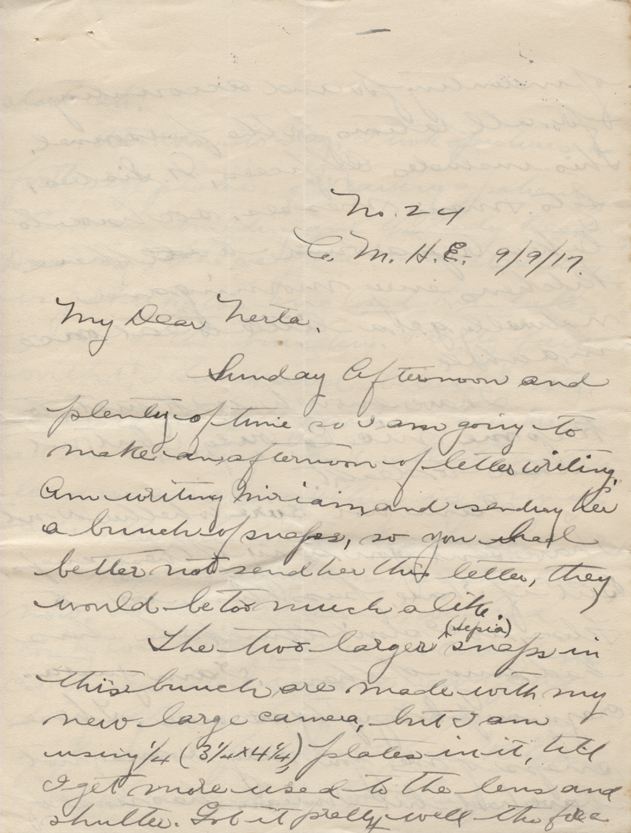 No. 24
C. M. H. E. 9/9/17.
My Dear Nerta.
Sunday afternoon and
plenty of time so I am going to
make an afternoon of letter writing.
Am writing Miriam and sending her
a bunch of snaps, so you had
better not send her this letter, they
would be too much alike.
The two larger (sepia) snaps in
this bunch are made with my
new large camera, but I am
using 1/4 (3 1/4 x 4 1/4) plates in it, till
I get more used to the lens and
shutter. Got it pretty well the